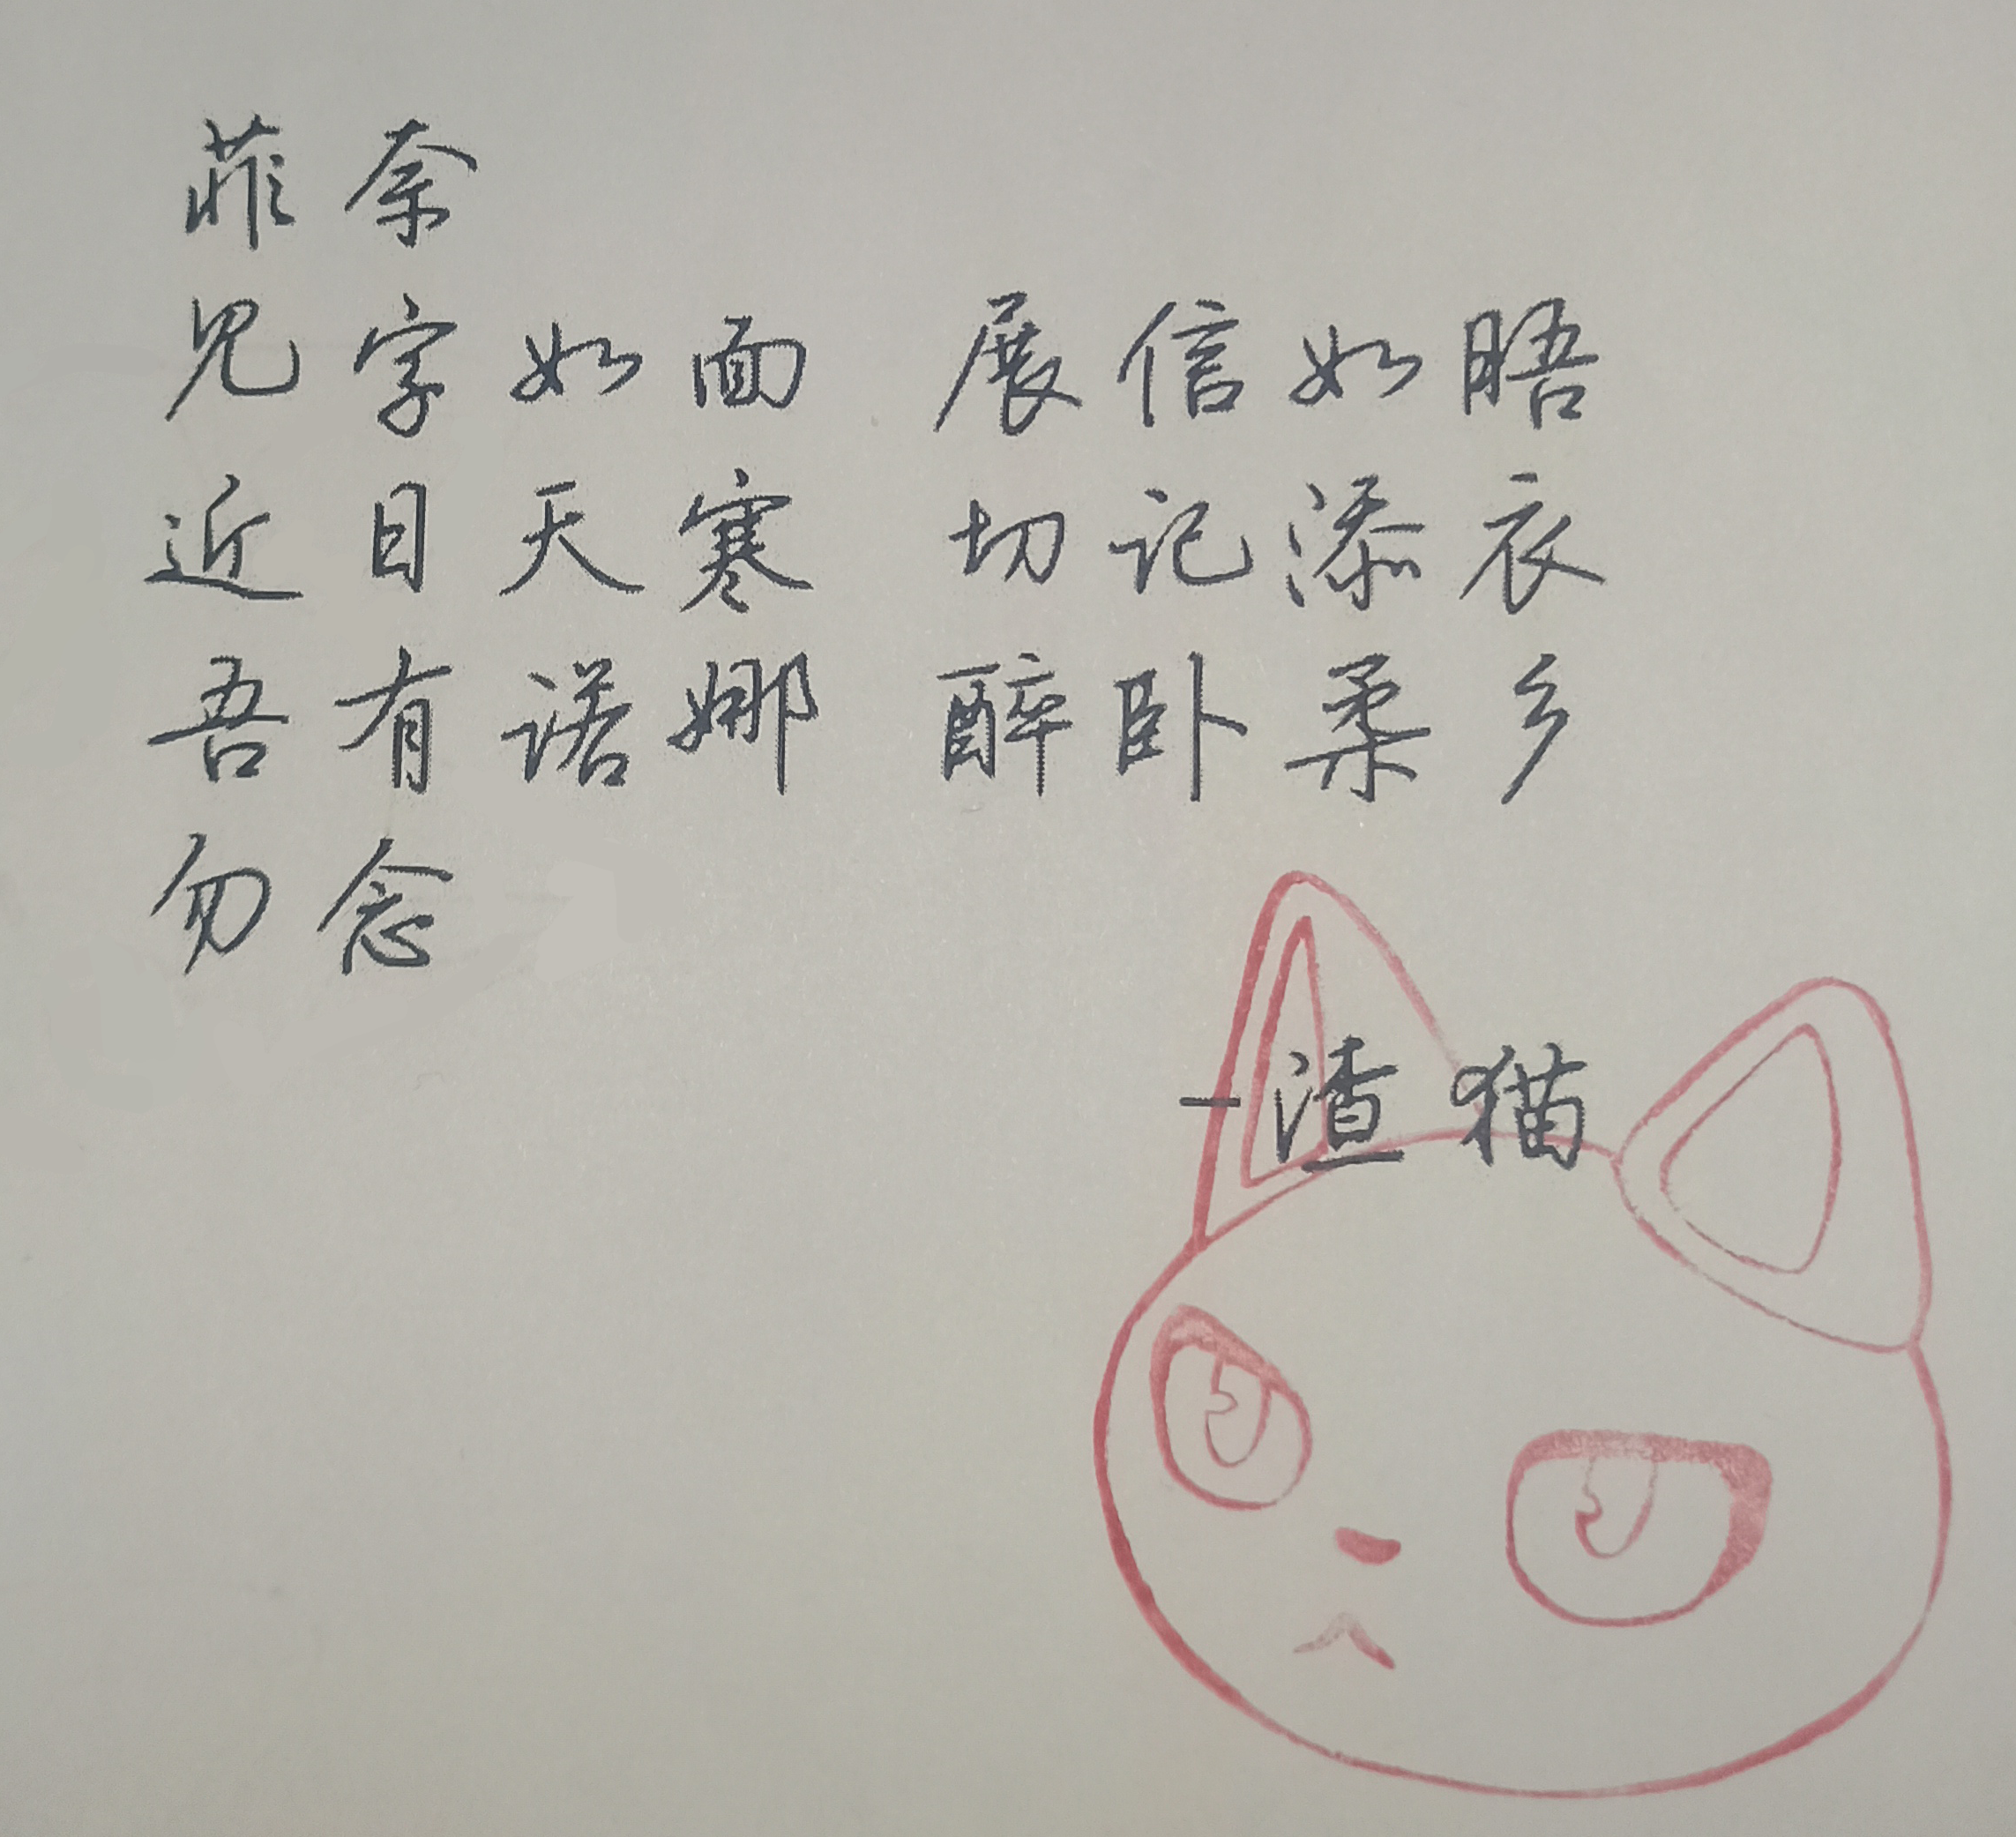 菲奈
见字如面 展信如晤
近日天寒 切记添衣
吾有诺娜 醉卧柔乡
勿念
-渣猫